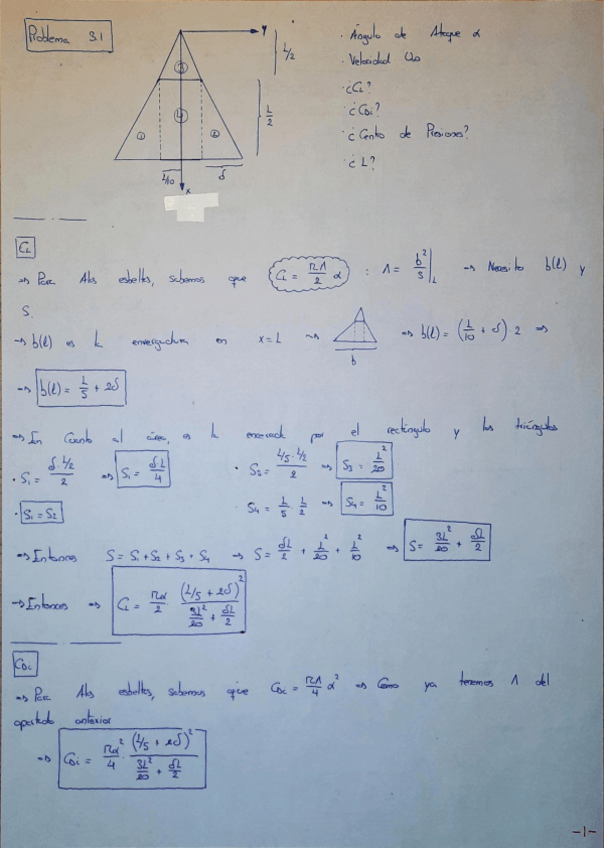 Problema 3.1
Y
L/2
L/2
③
④
①
②
L/10
δ
x
· Ángulo de Ataque α
· Velocidad U∞
· ¿CL?
· ¿CDi?
· ¿Centro de Presiones?
· ¿L?
CL
→ Para Alas esbeltas, sabemos que CL = πΛ/2 α : Λ = b²/S |L → Necesito b(l) y
S.
→ b(l) es la envergadura en x = L → b → b(l) = (L/10 + δ) 2 ⇒
→ b(l) = L/5 + 2δ
→ En Cuanto al área, es la encerrada por el rectángulo y los triángulos
· S1 = (δ · L/2)/2 ⇒ S1 = δ·L/4 · S3 = (L/5 · L/2)/2 ⇒ S3 = L²/20
· S1 = S2 S4 = L/5 L/2 ⇒ S4 = L²/10
→ Entonces S = S1 + S2 + S3 + S4 → S = δL/2 + L²/20 + L²/10 → S = 3L²/20 + δL/2
→ Entonces ⇒ CL = πα/2 (L/5 + 2δ)²/(3L²/20 + δL/2)
CDi
→ Para Alas esbeltas, sabemos que CDi = πΛ/4 α² ⇒ Como ya tenemos Λ del
apartado anterior
⇒ CDi = πα²/4 · (L/5 + 2δ)²/(3L²/20 + δL/2)
-1-